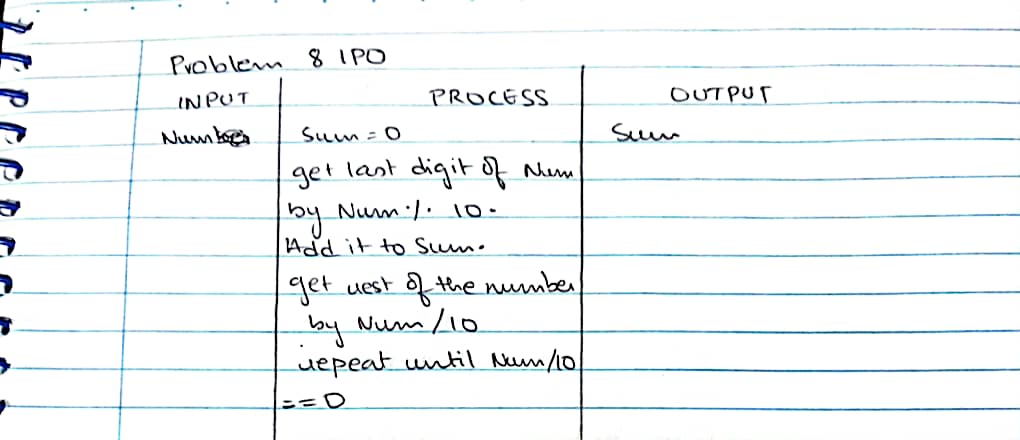 Problem 8 IPO
INPUT PROCESS OUTPUT
Num Sum = 0 Sum
get last digit of Num
by Num % 10.
Add it to Sum.
get rest of the number
by Num /10
repeat until Num/10
== 0